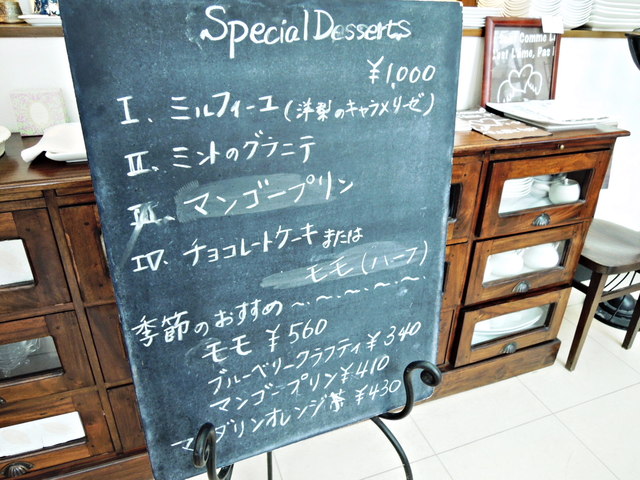 Special Desserts
¥1,000
I、ミルフィーユ(洋梨のキャラメリーゼ)
II、ミントのグラニテ
III、マンゴープリン
IV、チョコレートケーキ または
モモ(ハーフ)
季節のおすすめ 〜・〜・〜・〜・〜
モモ ¥560
ブルーベリークラフティ ¥340
マンゴープリン ¥410
マンダリンオレンジ茶 ¥430
Comme